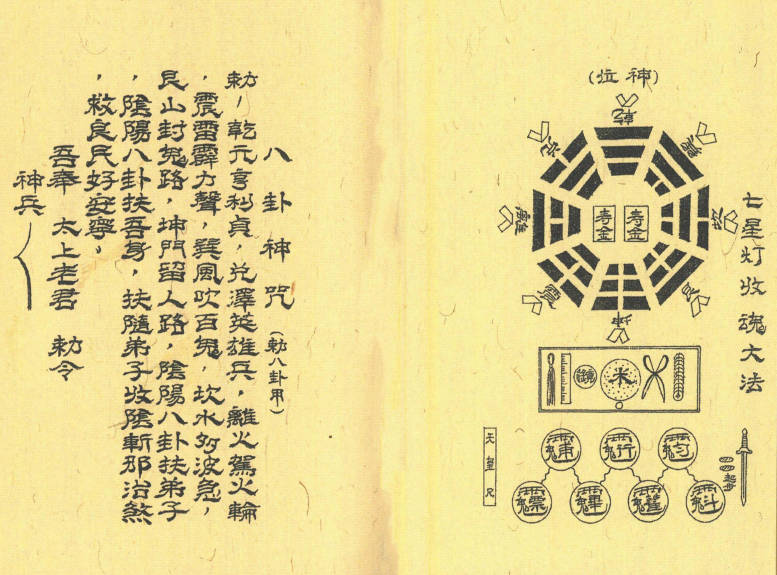 七星灯收魂大法
(神位)
乾
離
震
坤
艮
寿金
寿金
米
天皇尺
八卦神咒(勅八卦用)
勅,乾元亨利貞,兌澤英雄兵,離火駕火輪
,震雷霹力聲,巽風吹百鬼,坎水如波急,
艮山封鬼路,坤門留人路,陰陽八卦扶弟子
,陰陽八卦扶吾身,扶隨弟子收陰斬邪治煞
,救良民好安寧,
吾奉 太上老君 勅令
神兵